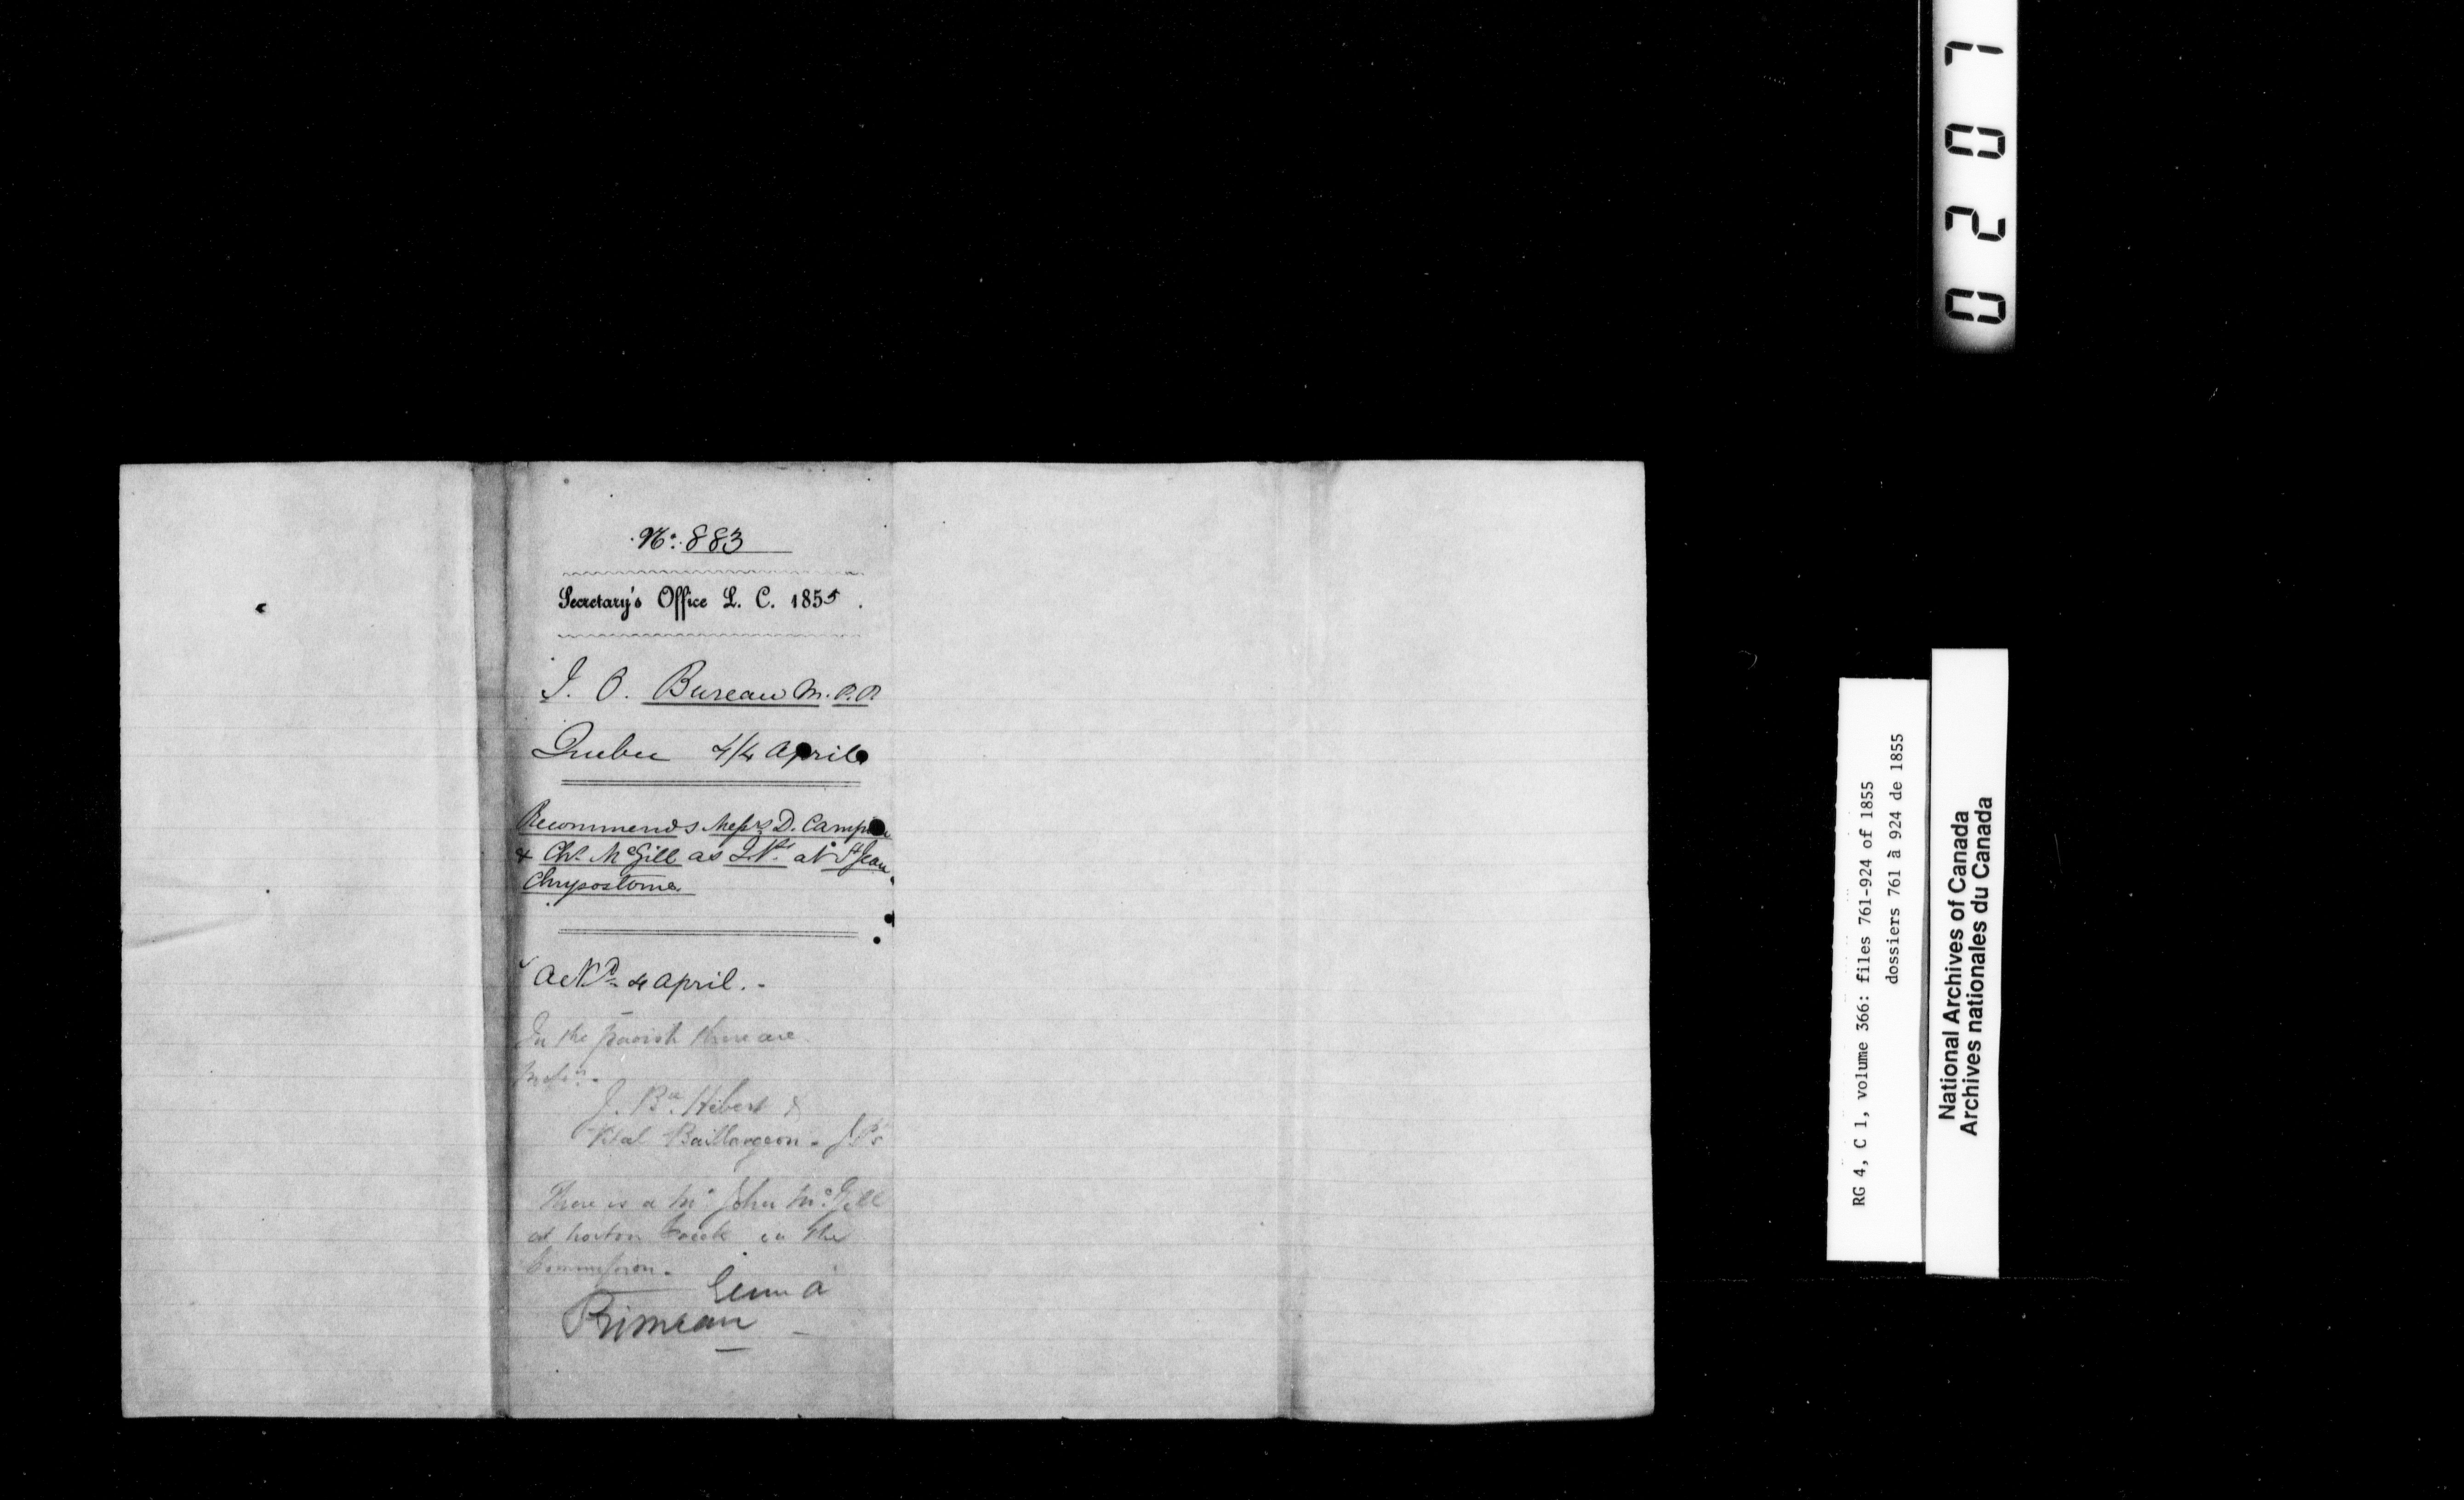 No. 883
Secretary's Office L. C. 1855.
J. O. Bureau M.P.P.
Quebec 4/4 April
Recommends Messrs D. Campion
& Chs. McGill as at St Jean
Chrysostome.
Ackd. 4 April. -
In the parish there are
Messrs.
J. Bte. Hébert &
Vital Baillargeon - JPs
There is a Mr John McGill
at Norton Creek in the
Commission.
à
Primeau
0207
RG 4, C 1, volume 366: files 761-924 of 1855
dossiers 761 à 924 de 1855
National Archives of Canada
Archives nationales du Canada